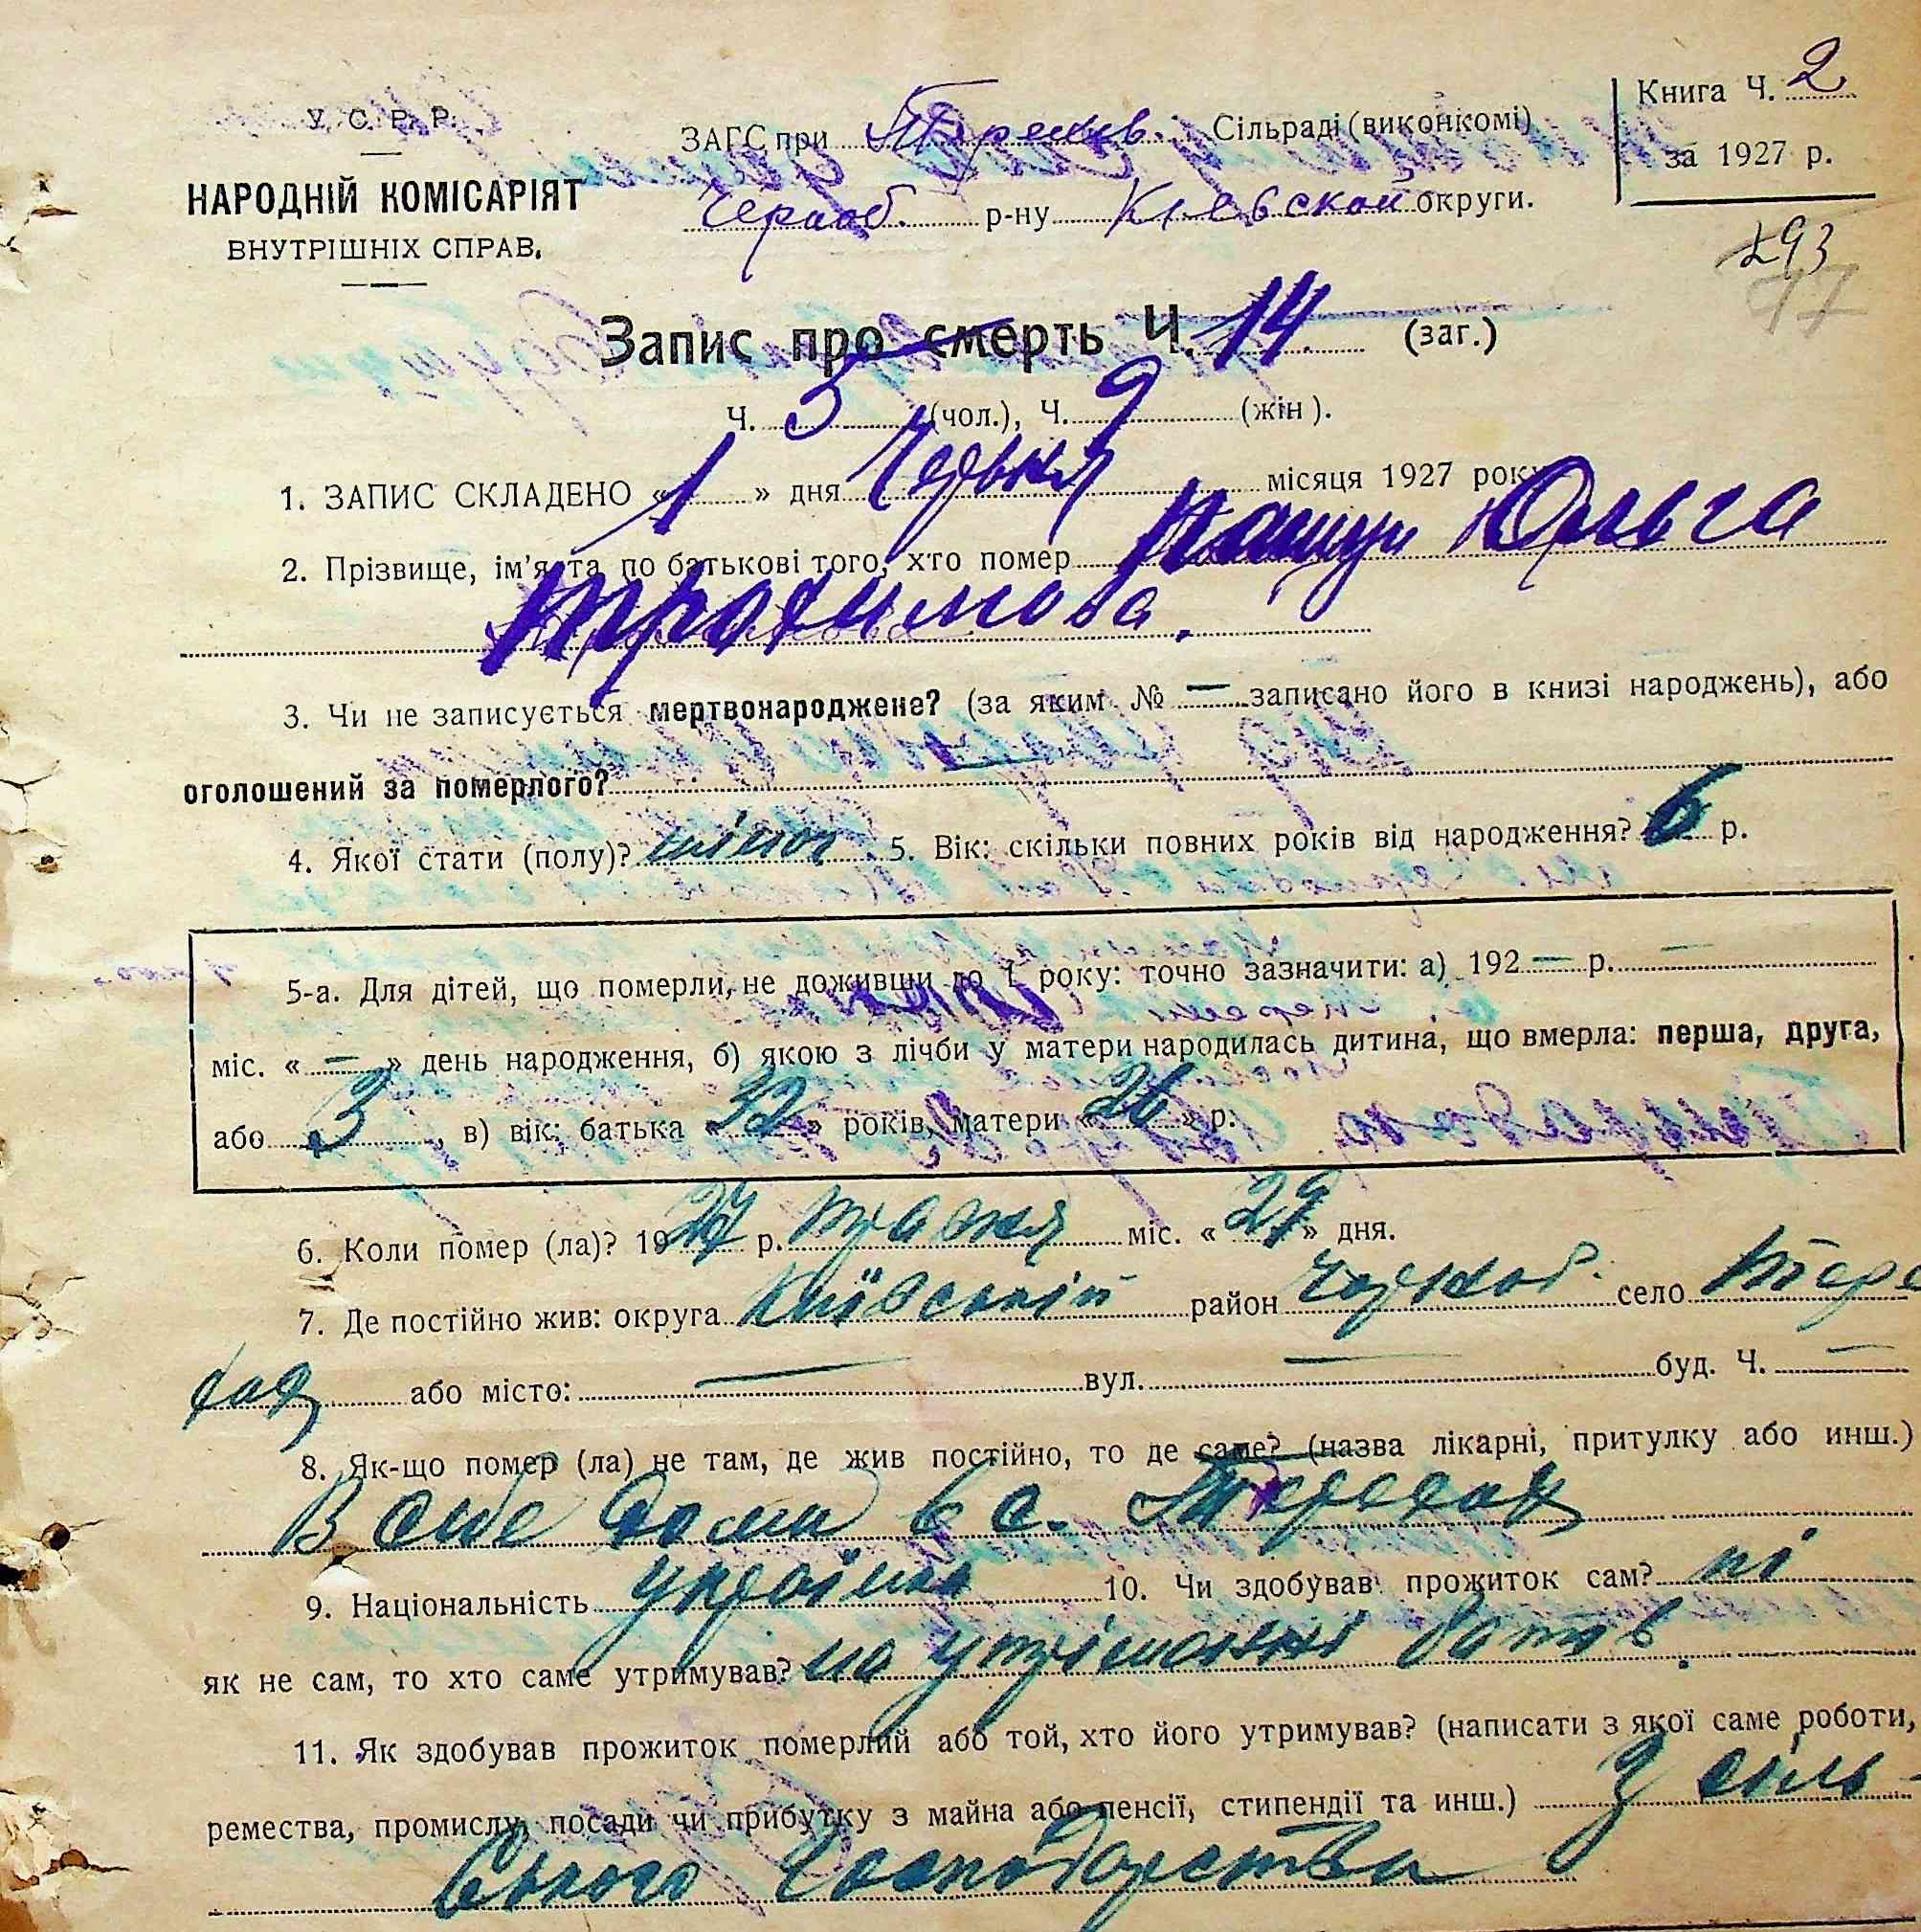 У. С. Р. Р.
НАРОДНІЙ КОМІСАРІЯТ
ВНУТРІШНІХ СПРАВ.
ЗАГС при Сільраді (виконкомі)
Черноб. р-ну Кіевской округи.
Книга Ч. 2
за 1927 р.
293
Запис про смерть Ч. 14. (заг.)
Ч. 5 (чол.), Ч. 9 (жін).
1. ЗАПИС СКЛАДЕНО « 1 » дня Червня місяця 1927 року
2. Прізвище, ім'я та по батькові того, хто помер Ольга
Трохимова.
3. Чи не записується мертвонароджене? (за яким № — записано його в книзі народжень), або
оголошений за померлого? —
4. Якої стати (полу)? жіноч. 5. Вік: скільки повних років від народження? 6 р.
5-а. Для дітей, що померли, не доживши до 1 року: точно зазначити: а) 192 — р. —
міс. « — » день народження, б) якою з лічби у матери народилась дитина, що вмерла: перша, друга,
або 3, в) вік: батька « 32 » років, матери « 26 » р.
6. Коли помер (ла)? 1927 р. травня міс. « 29 » дня.
7. Де постійно жив: округа Київський район Чорноб. село Тере
хах або місто: — вул. — буд. Ч. —
8. Як-що помер (ла) не там, де жив постійно, то де саме? (назва лікарні, притулку або инш.)
В себе дома в с. Терехах
9. Національність україн 10. Чи здобував прожиток сам? ні
як не сам, то хто саме утримував? на утріманні батьків.
11. Як здобував прожиток померлий або той, хто його утримував? (написати з якої саме роботи,
ремества, промислу, посади чи прибутку з майна або пенсії, стипендії та инш.) З сіль-
ського господарства